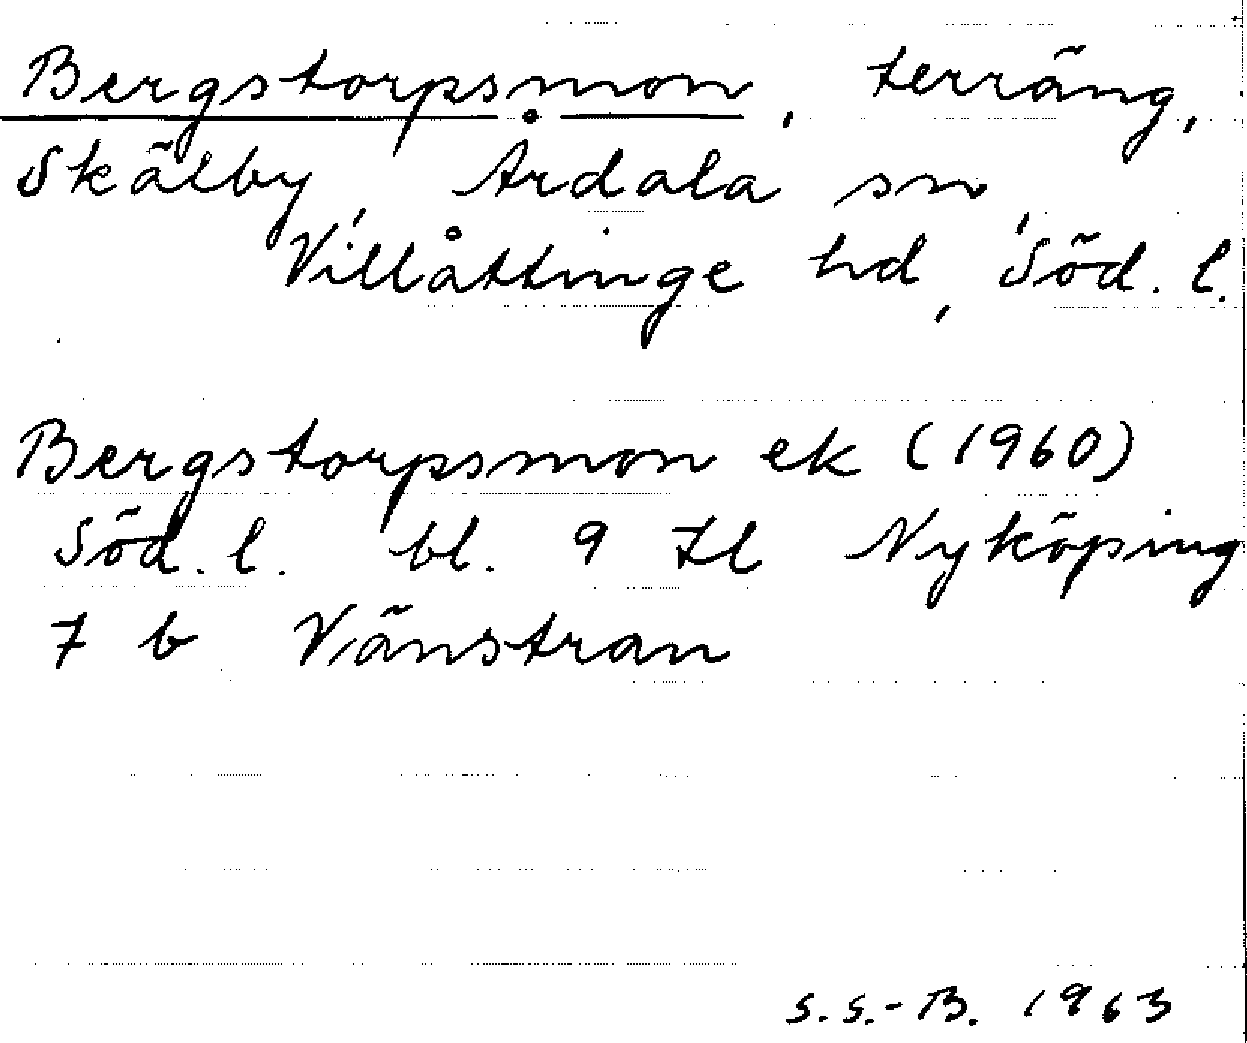 Bergstorpsmon, terräng,
Skälby, Årdala sn,
Villåttinge hd, Söd. l.
Bergstorpsmon ek (1960)
Söd. l. bl. 9 Il Nyköping
7 b Vänstran
S.S.-B. 1963